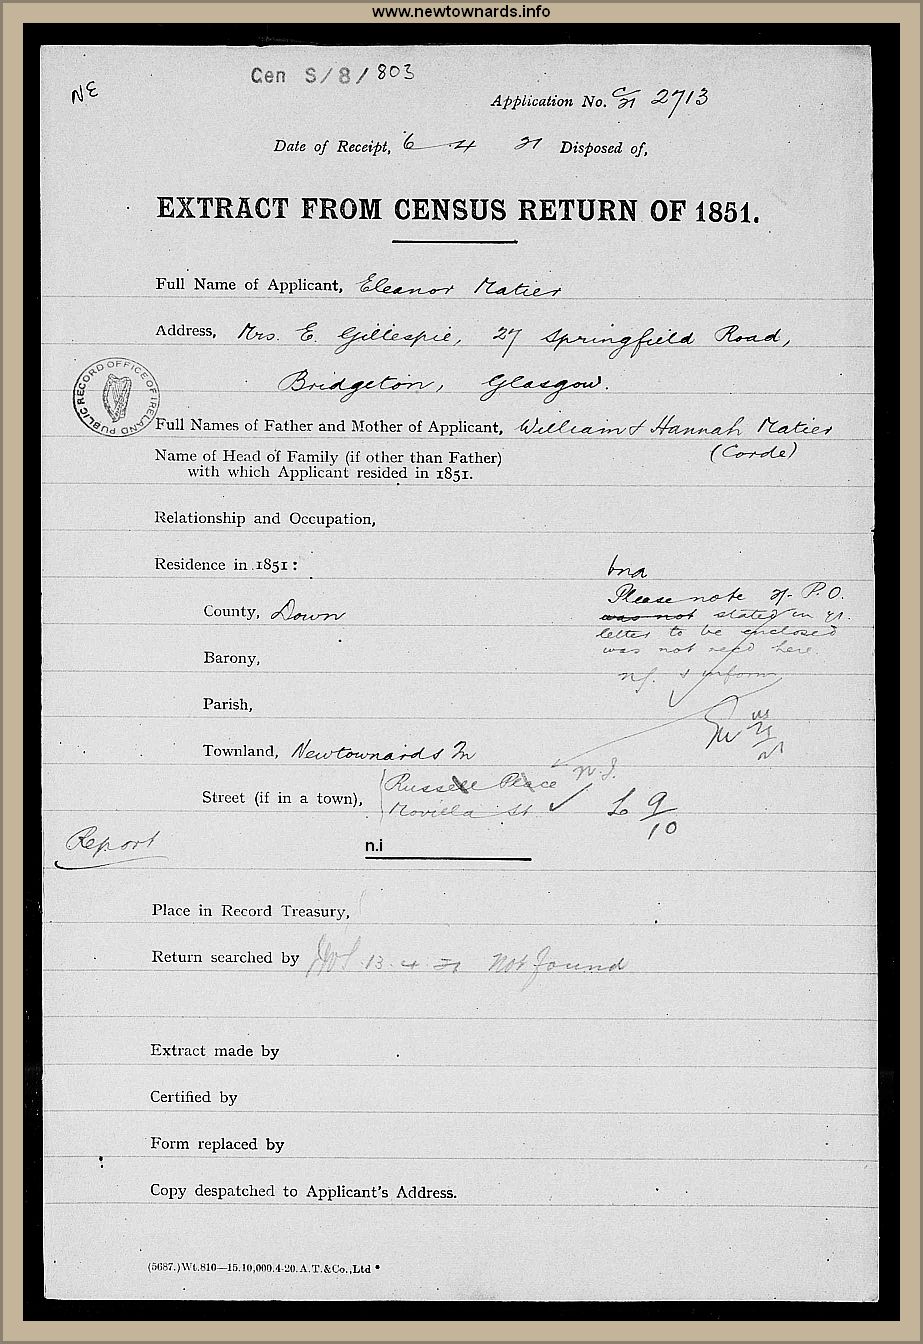 www.newtownards.info
Cen S/8/803
NE
Application No. C/21 2713
Date of Receipt, 6 4 21 Disposed of,
EXTRACT FROM CENSUS RETURN OF 1851.
Full Name of Applicant, Eleanor Matier
Address, Mrs. E. Gillespie, 27 Springfield Road,
Bridgeton, Glasgow.
PUBLIC RECORD OFFICE OF IRELAND
Full Names of Father and Mother of Applicant, William & Hannah Matier
(Corde)
Name of Head of Family (if other than Father)
with which Applicant resided in 1851.
Relationship and Occupation,
Residence in 1851:
Please note P.O.
County, Down
was not stated in yr.
letter to be enclosed
was not recd here.
Barony,
& inform
Parish,
Townland, Newtownards Tn
Street (if in a town), Russell Place n.f.
Movilla St
9/10
Report
n.i
Place in Record Treasury,
Return searched by 13.4.21 Not found
Extract made by
Certified by
Form replaced by
Copy despatched to Applicant's Address.
(5687.)Wt.810—15.10,000.4-20.A.T.&Co.,Ltd